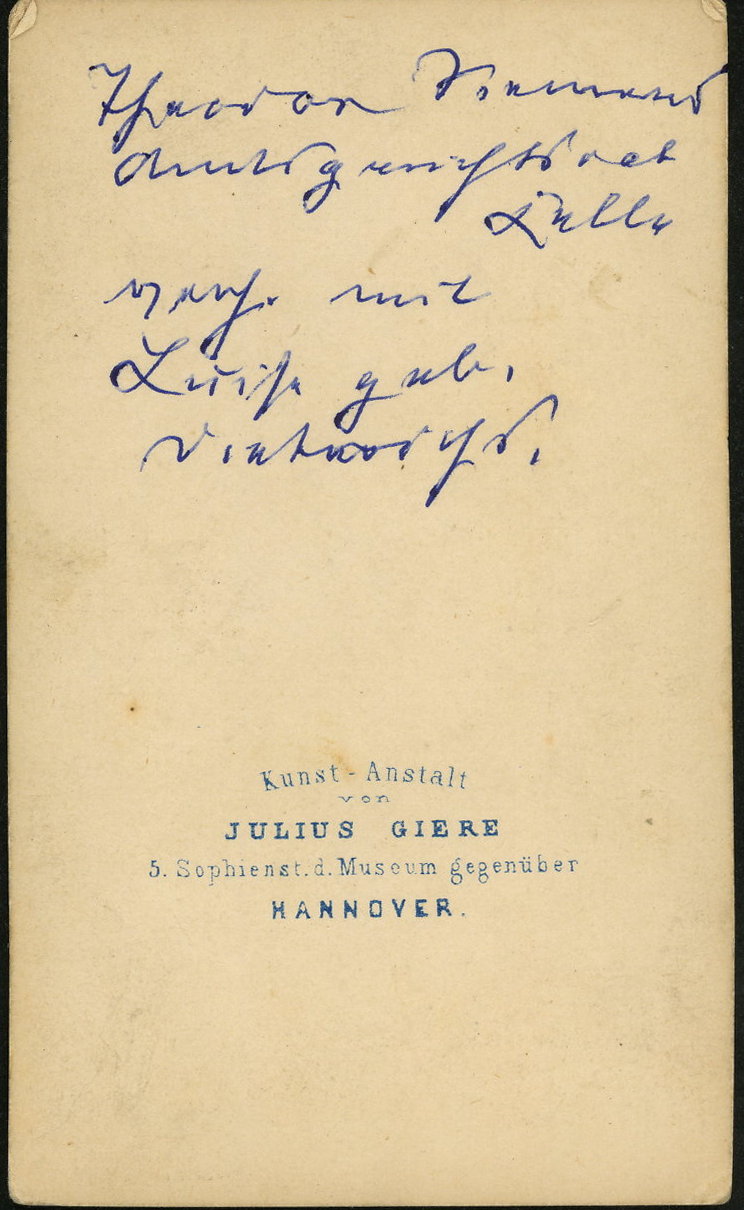 Theodor
Amtsgerichtsrat
Celle
verh. mit
Luise geb.
Kunst-Anstalt
von
JULIUS GIERE
5. Sophienst. d. Museum gegenüber
HANNOVER.